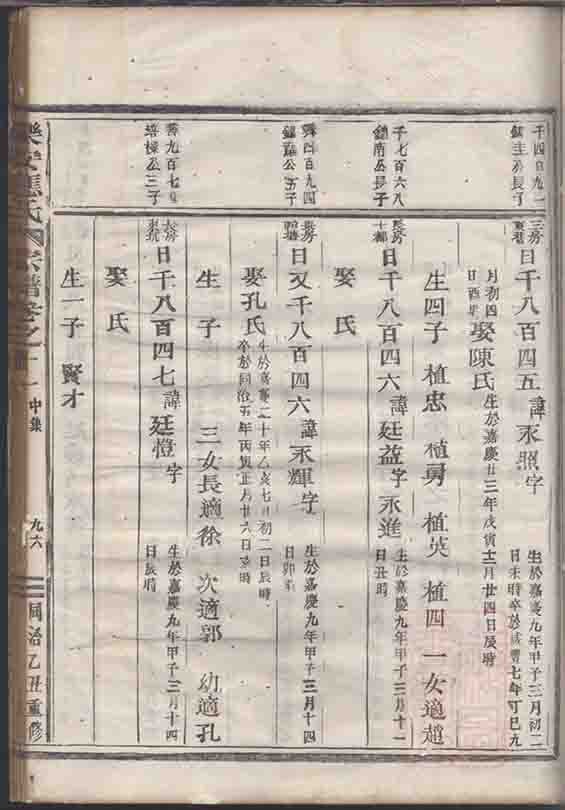 千四百九一
公長子
三房
日千八百四五諱永照字
生於嘉慶九年甲子三月初二
日未時卒於咸豐七年丁巳九
月初四
日酉時
娶陳氏
生於嘉慶廿三年戊寅十二月廿四日辰時
生四子 植忠 植勇 植英 植四 一女適趙
千七百六八
鎮南公長子
長房
日千八百四六諱廷益字永進
生於嘉慶九年甲子三月十一
日丑時
娶 氏
百九四
公 子
日又千八百四六諱永輝字
生於嘉慶九年甲子三月十四
日卯
娶孔氏
生於嘉慶二十年乙亥七月初二日辰時
卒於同治五年丙寅正月廿六日 時
生 子 三女長適徐 次適郭 幼適孔
九百七
培棟公三子
長房
日千八百四七諱廷愷字
生於嘉慶九年甲子三月十四
日辰時
娶 氏
生一子 賢才
樂安 氏宗譜卷之
中集
九六
同治乙丑重修